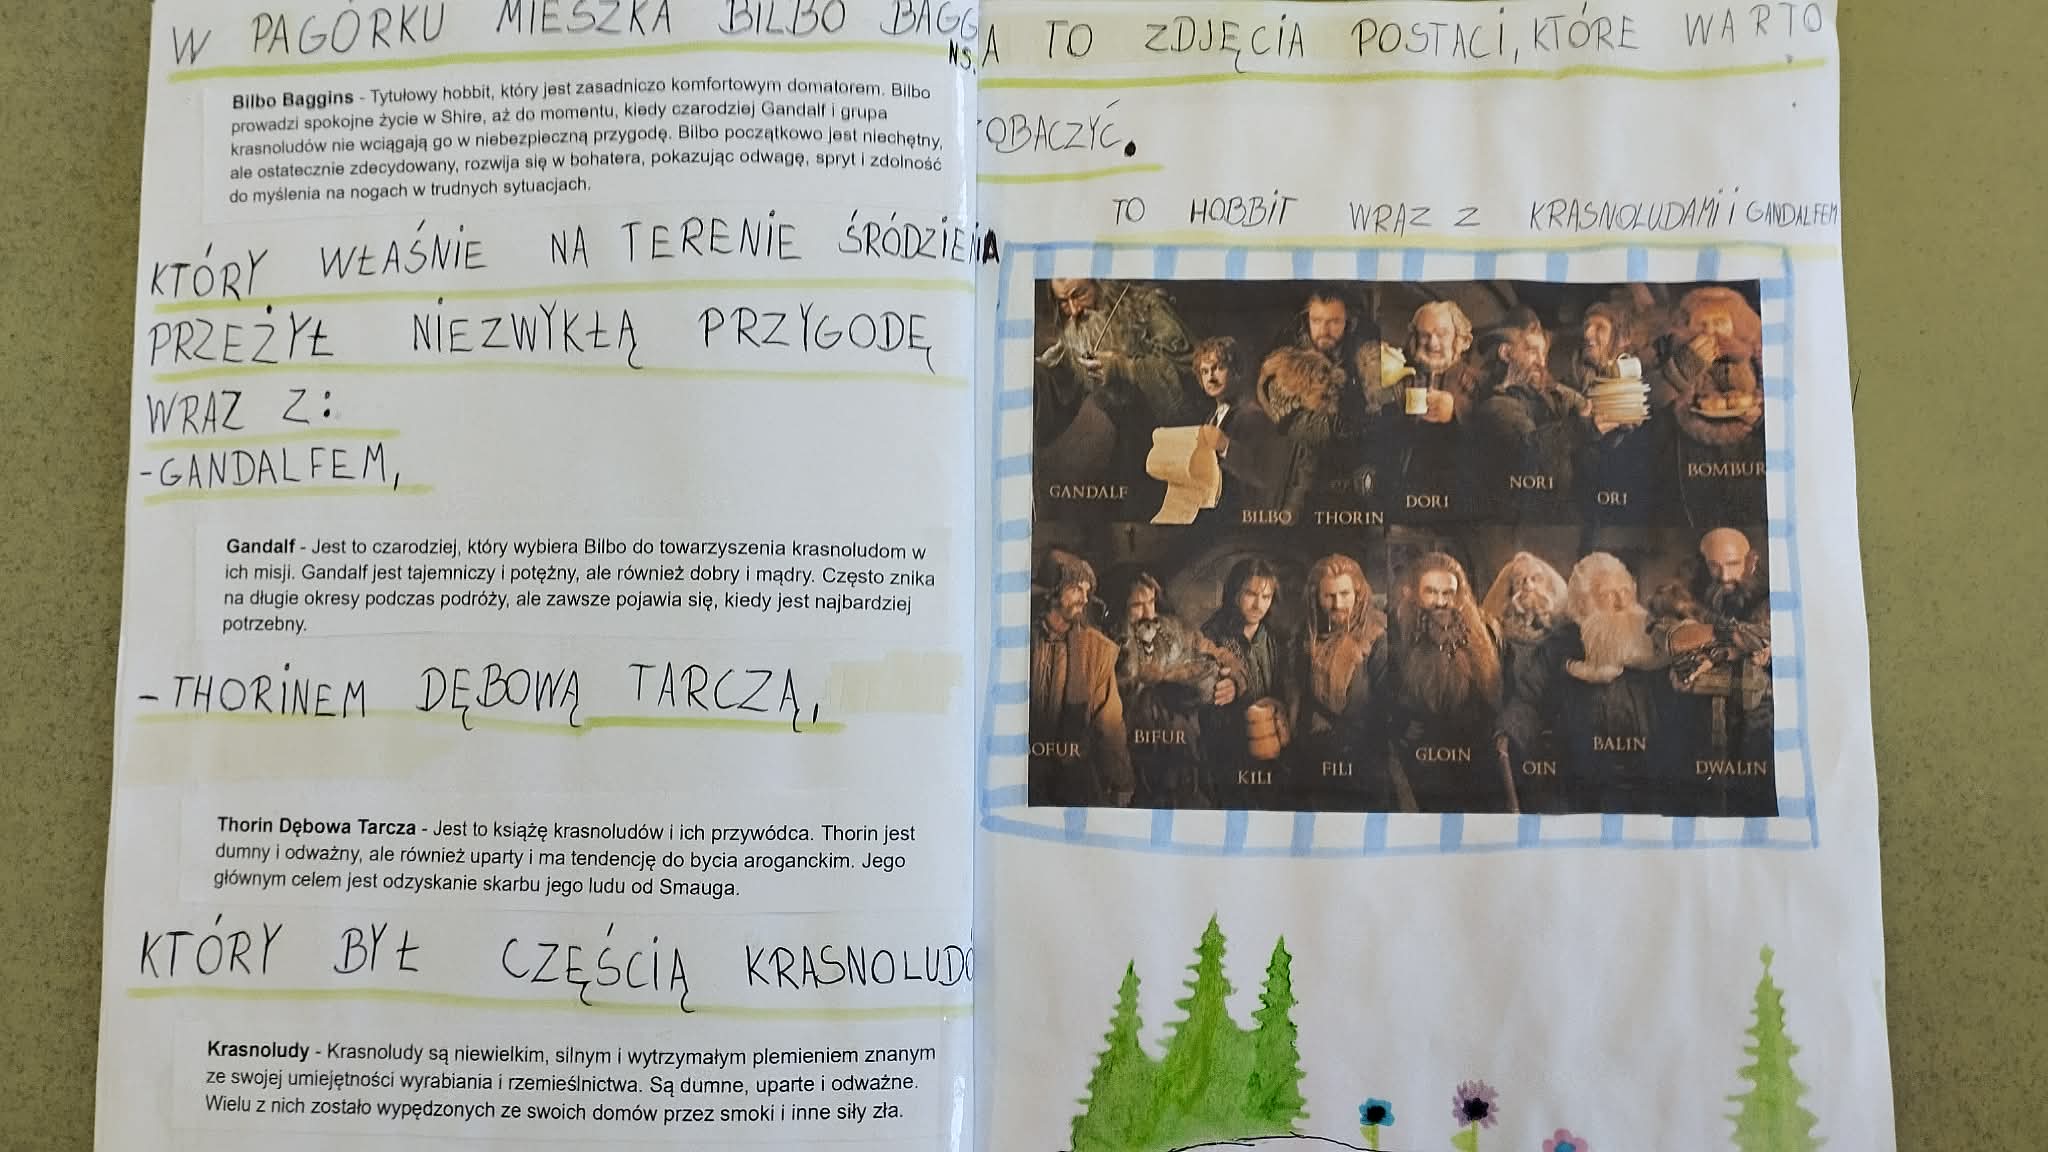 W PAGÓRKU MIESZKA BILBO BAGGINS.
Bilbo Baggins - Tytułowy hobbit, który jest zasadniczo komfortowym domatorem. Bilbo
prowadzi spokojne życie w Shire, aż do momentu, kiedy czarodziej Gandalf i grupa
krasnoludów nie wciągają go w niebezpieczną przygodę. Bilbo początkowo jest niechętny,
ale ostatecznie zdecydowany, rozwija się w bohatera, pokazując odwagę, spryt i zdolność
do myślenia na nogach w trudnych sytuacjach.
KTÓRY WŁAŚNIE NA TERENIE ŚRÓDZIEMIA
PRZEŻYŁ NIEZWYKŁĄ PRZYGODĘ
WRAZ Z:
-GANDALFEM,
Gandalf - Jest to czarodziej, który wybiera Bilbo do towarzyszenia krasnoludom w
ich misji. Gandalf jest tajemniczy i potężny, ale również dobry i mądry. Często znika
na długie okresy podczas podróży, ale zawsze pojawia się, kiedy jest najbardziej
potrzebny.
-THORINEM DĘBOWĄ TARCZĄ,
Thorin Dębowa Tarcza - Jest to książę krasnoludów i ich przywódca. Thorin jest
dumny i odważny, ale również uparty i ma tendencję do bycia aroganckim. Jego
głównym celem jest odzyskanie skarbu jego ludu od Smauga.
KTÓRY BYŁ CZĘŚCIĄ KRASNOLUDÓ
Krasnoludy - Krasnoludy są niewielkim, silnym i wytrzymałym plemieniem znanym
ze swojej umiejętności wyrabiania i rzemieślnictwa. Są dumne, uparte i odważne.
Wielu z nich zostało wypędzonych ze swoich domów przez smoki i inne siły zła.
A TO ZDJĘCIA POSTACI, KTÓRE WARTO
ZOBACZYĆ.
TO HOBBIT WRAZ Z KRASNOLUDAMI I GANDALFEM
GANDALF BILBO THORIN DORI NORI ORI BOMBUR
OFUR BIFUR KILI FILI GLOIN OIN BALIN DWALIN